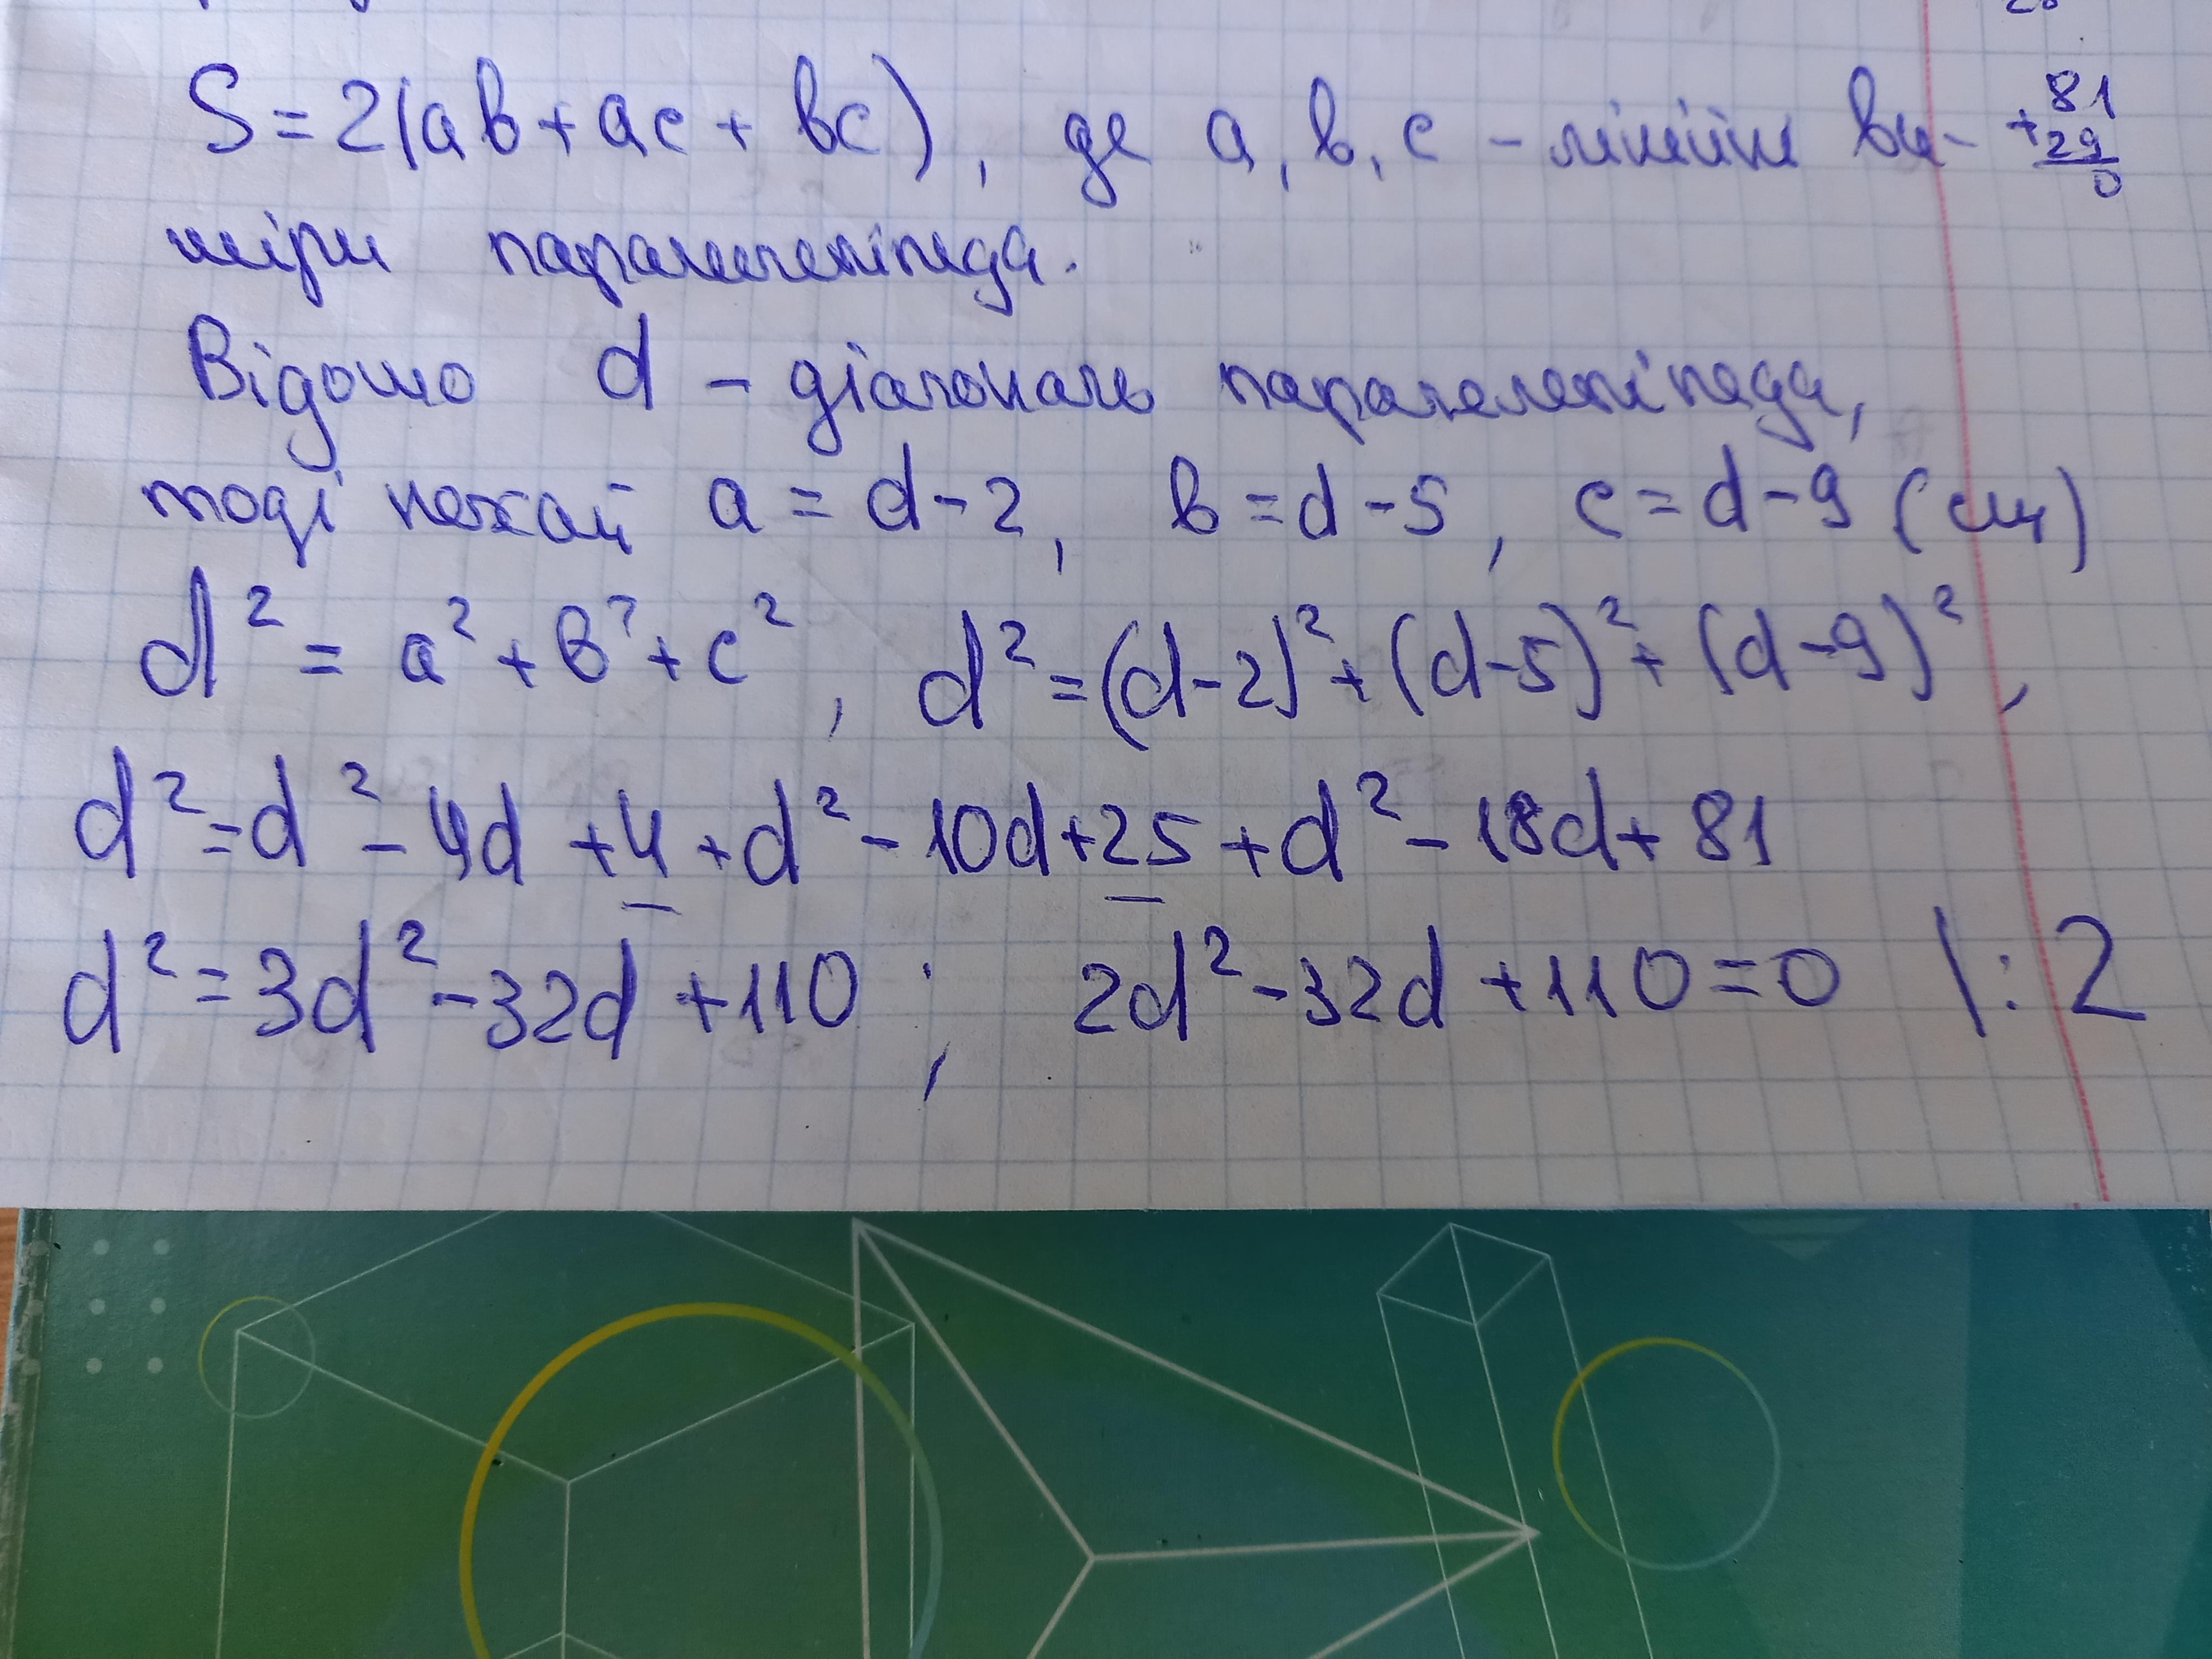 S = 2(ab + ac + bc), де a, b, c - лінійні ви-
міри паралелепіпеда.
+81
29
0
Відомо d - діагональ паралелепіпеда,
тоді нехай a = d - 2, b = d - 5, c = d - 9 (см)
d² = a² + b² + c², d² = (d-2)² + (d-5)² + (d-9)²,
d² = d² - 4d + 4 + d² - 10d + 25 + d² - 18d + 81
d² = 3d² - 32d + 110 ; 2d² - 32d + 110 = 0 |: 2